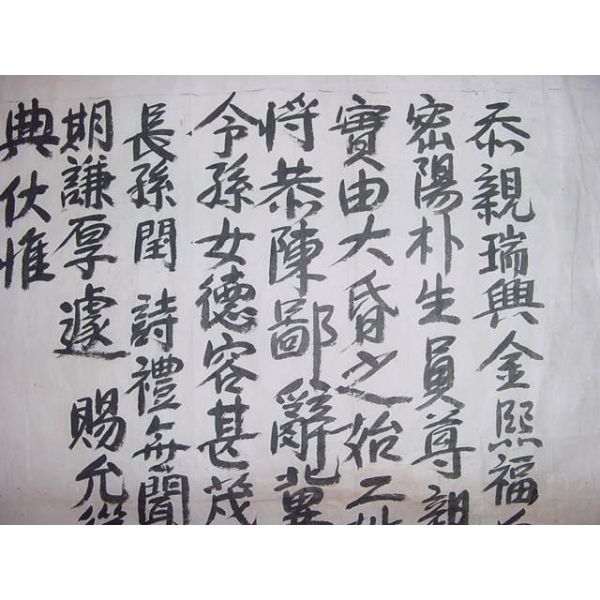 忝親瑞興金熙福
密陽朴生員尊親
實由大昏之始二
將恭陳鄙辭冀
令孫女德容甚茂
長孫閏 詩禮無聞
期謙厚遽 賜允
典伏惟